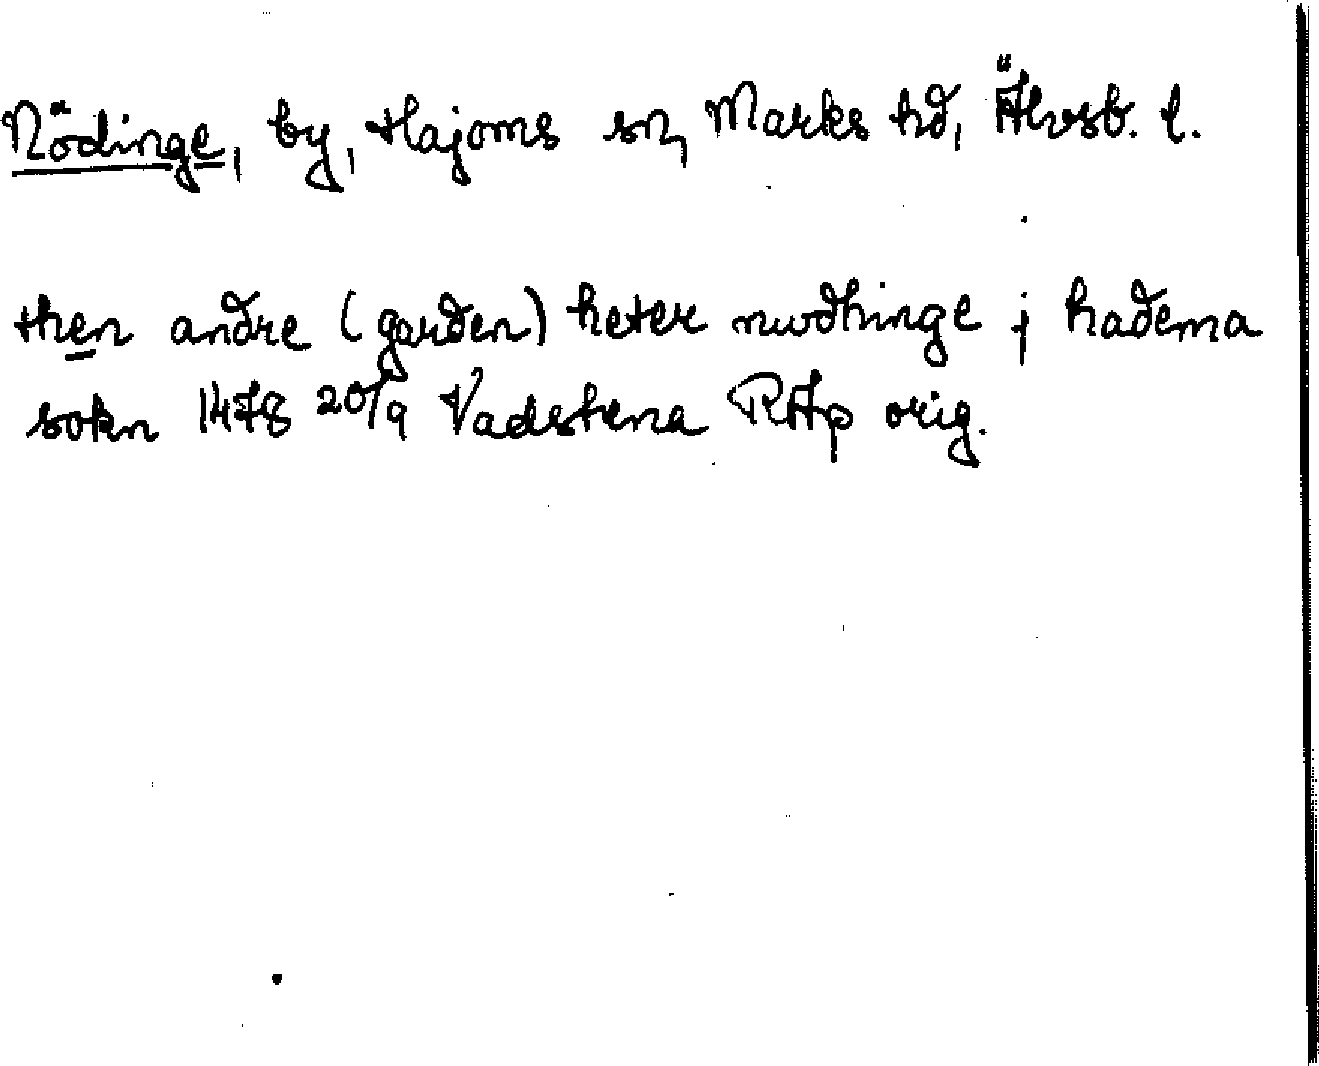 Nödinge, by, Hajoms sn, Marks hd, Älvsb. l.
then andre (garden) heter nwdhinge j hadema
sokn 1478 20/9 Vadstena RAp orig.